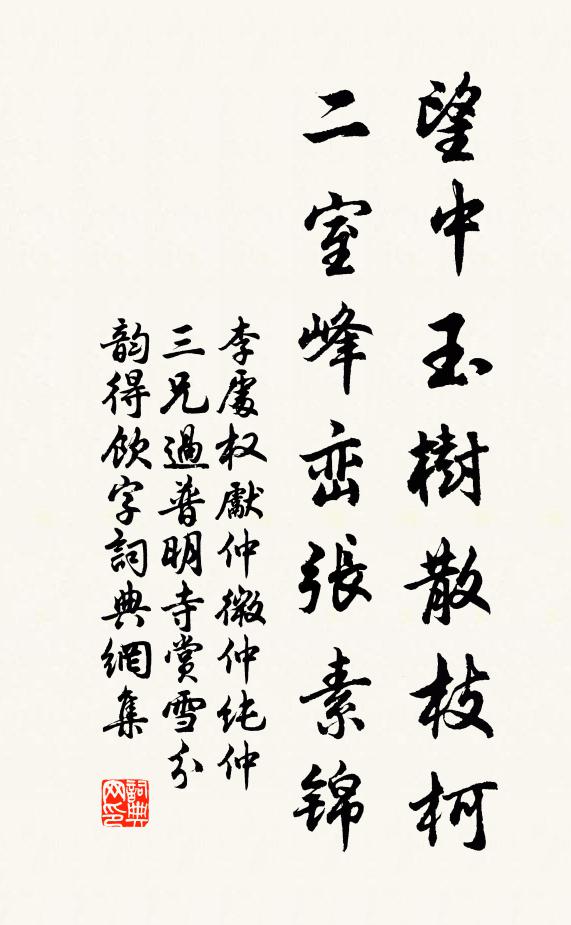 望中玉樹散枝柯
二室峰巒張素錦
李處权獻仲微仲純仲
三兄過普明寺賞雪分
韵得飲字詞典網集
詞典网印